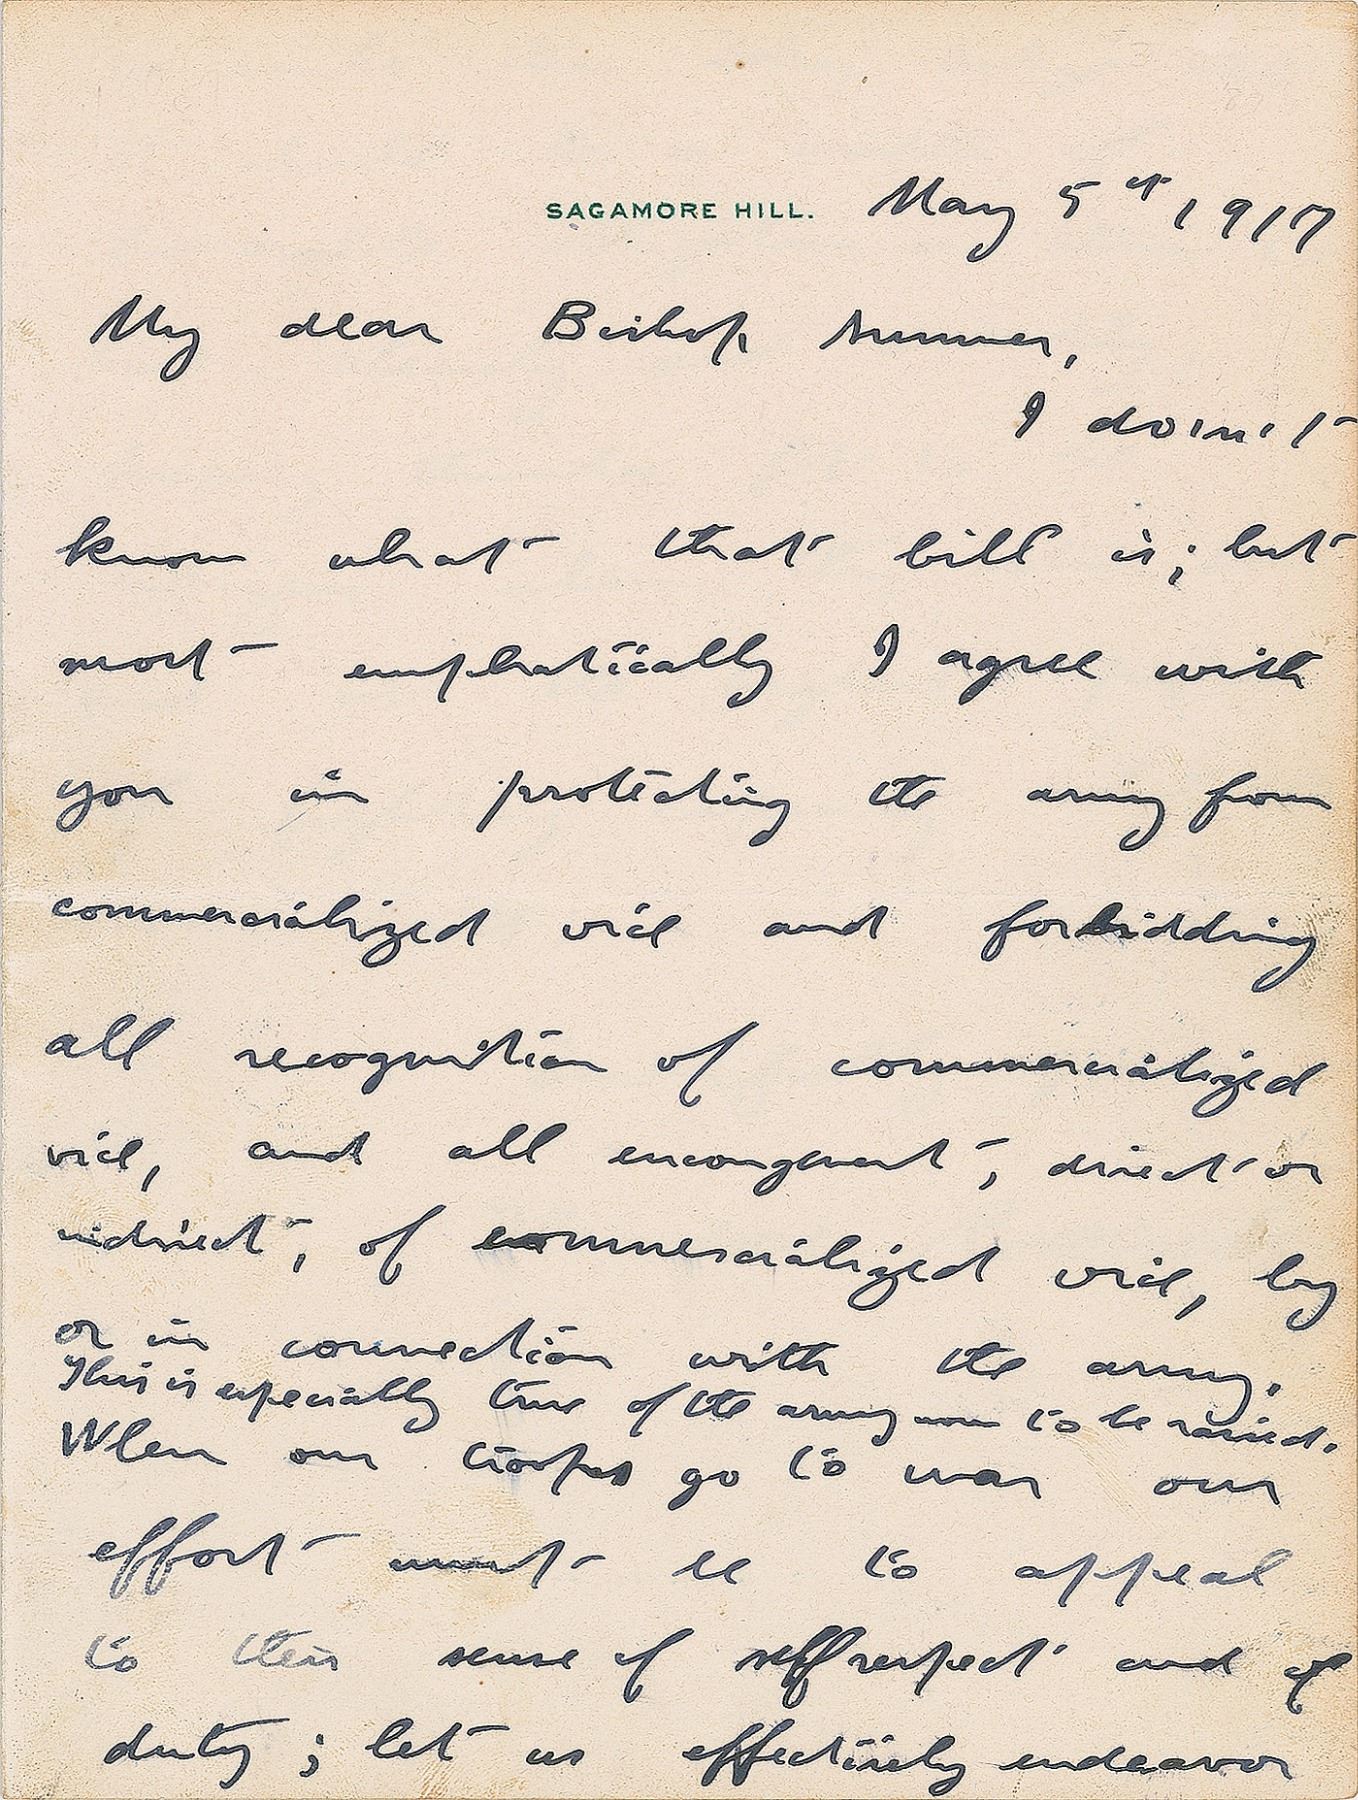 SAGAMORE HILL. May 5th 1917
My dear Bishop Sumner,
I do'n't
know what that bill is; but
most emphatically I agree with
you in protecting the army from
commercialized vice and forbidding
all recognition of commercialized
vice, and all encourgement, direct or
indirect, of commercialized vice, by
or in connection with the army.
This is especially true of the army now to be raised.
When our troops go to war our
effort must be to appeal
to their sense of self respect and of
duty; let us effectively endeavor